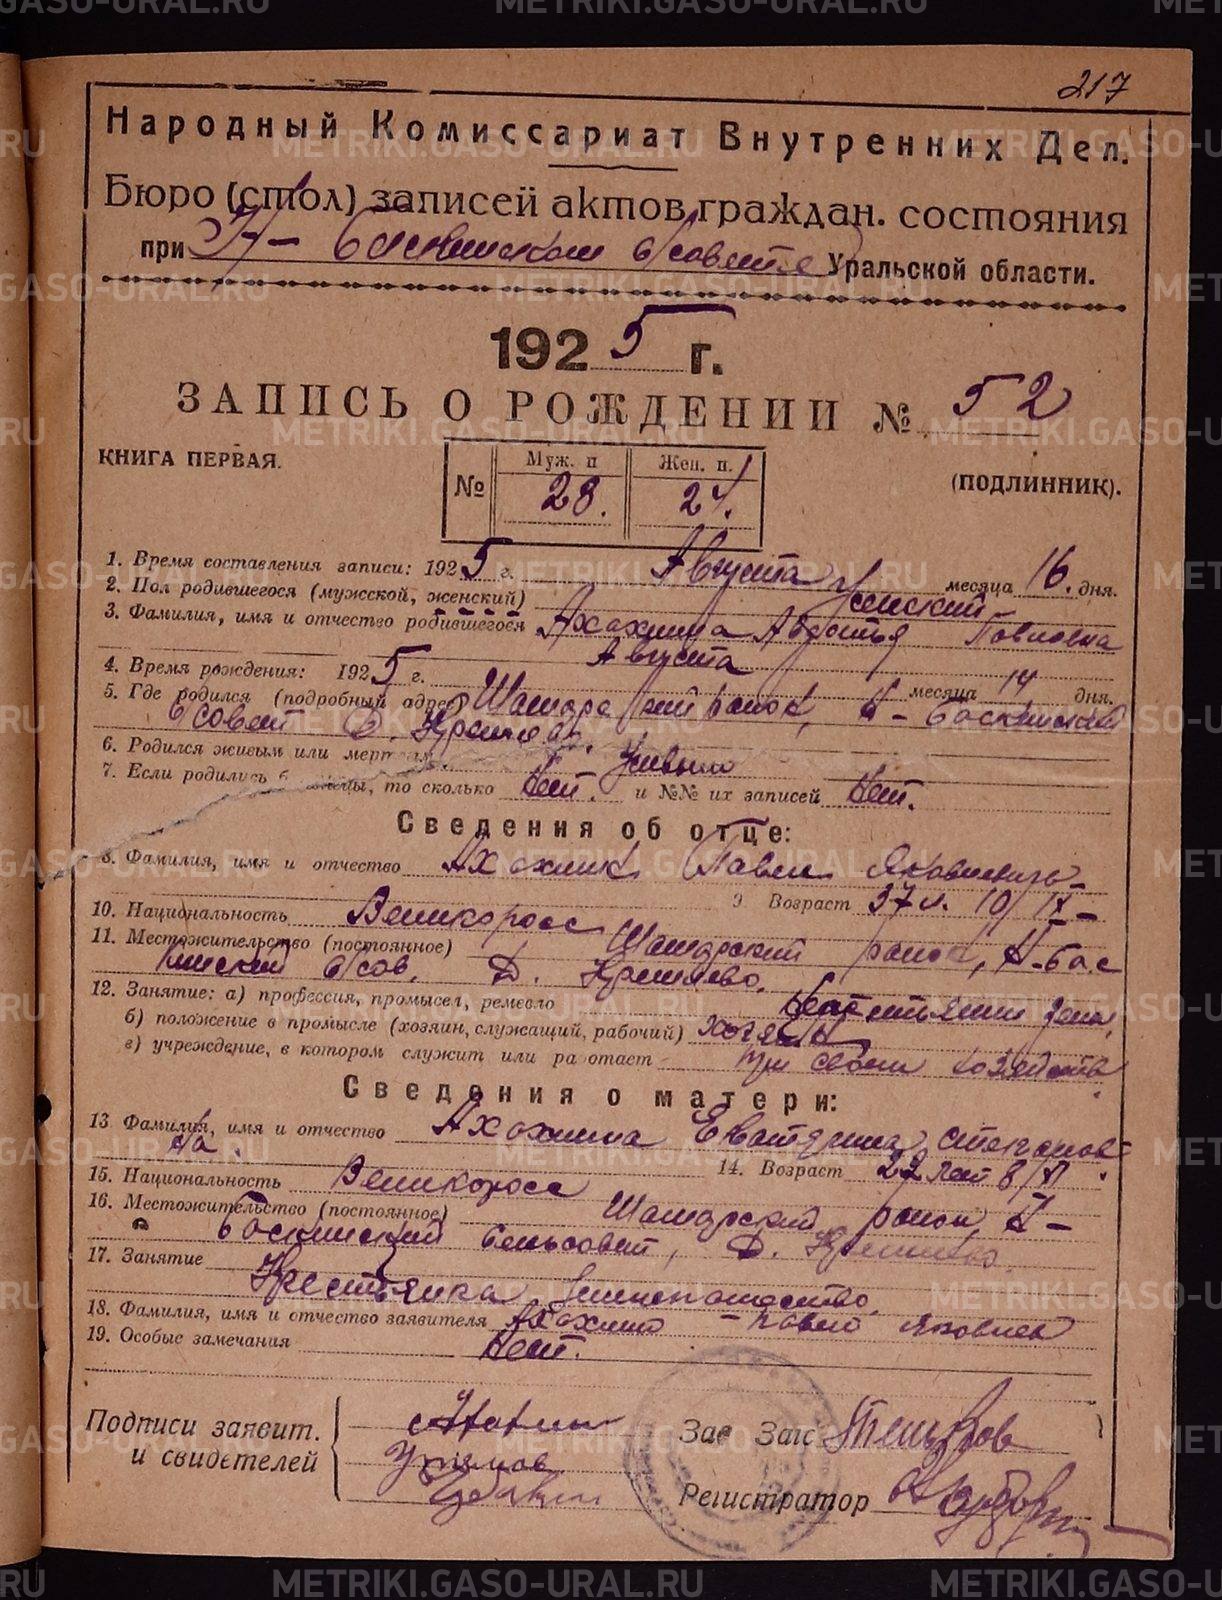 217
Народный Комиссариат Внутренних Дел.
Бюро (стол) записей актов граждан. состояния
при Н- Баскинском с/совете Уральской области.
1925 г.
ЗАПИСЬ О РОЖДЕНИИ № 52
КНИГА ПЕРВАЯ. (ПОДЛИННИК).
№ Муж. п Жен. п.
28. 24.
1. Время составления записи: 1925 г. Августа месяца 16. дня.
2. Пол родившегося (мужской, женский) Женский
3. Фамилия, имя и отчество родившегося Ахахлина Авдотья Павловна
4. Время рождения: 1925 г. Августа месяца 14 дня.
5. Где родился (подробный адрес) Шамарский район, Н-Баскинский
с/совет Д.
6. Родился живым или мертвым Живым
7. Если родились близнецы, то сколько Нет. и №№ их записей Нет.
Сведения об отце:
8. Фамилия, имя и отчество Павел Яковлевич
9 Возраст 37 л.
10. Национальность Великоросс
11. Местожительство (постоянное) Шамарский район, Н-Бас
кинский с/сов. Д.
12. Занятие: а) профессия, промысел, ремесло
б) положение в промысле (хозяин, служащий, рабочий) хозяин
в) учреждение, в котором служит или работает при своем хозяйстве
Сведения о матери:
13 Фамилия, имя и отчество Екатерина Степанов-
на.
14. Возраст лет
15. Национальность Великоросс
16. Местожительство (постоянное) Шамарский район, Н-
Баскинский сельсовет, Д.
17. Занятие
Крестьянка
18. Фамилия, имя и отчество заявителя Павел Яковлев
19. Особые замечания Нет.
Подписи заявит.
и свидетелей
Зав Загс
Регистратор
METRIKI.GASO-URAL.RU